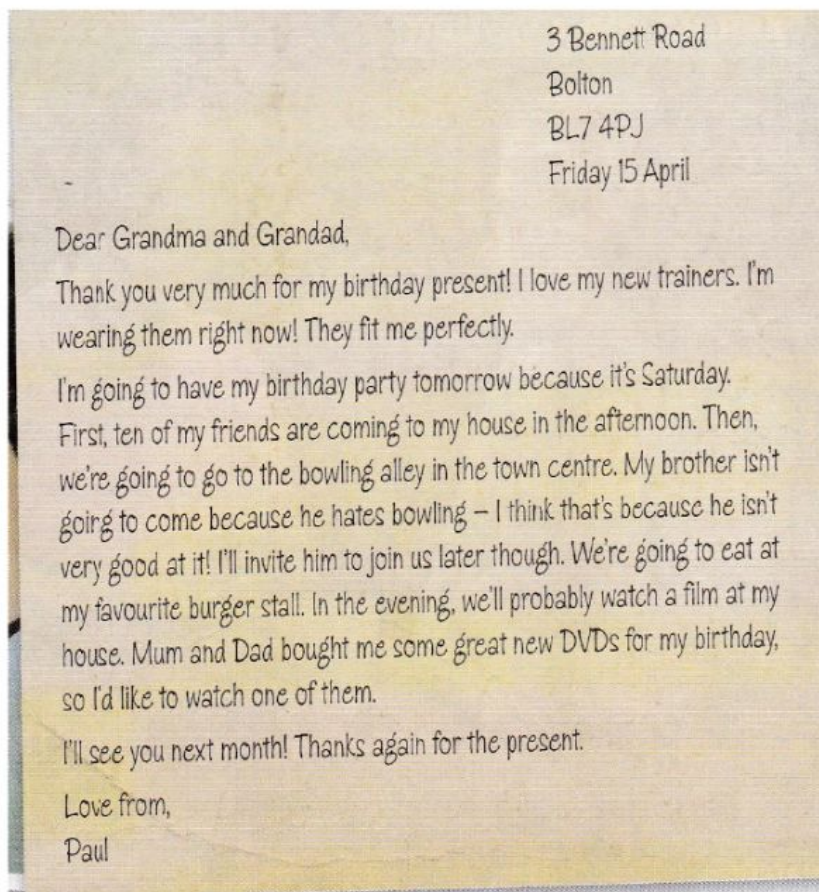 3 Bennett Road
Bolton
BL7 4PJ
Friday 15 April
Dear Grandma and Grandad,
Thank you very much for my birthday present! I love my new trainers. I'm
wearing them right now! They fit me perfectly.
I'm going to have my birthday party tomorrow because it's Saturday.
First, ten of my friends are coming to my house in the afternoon. Then,
we're going to go to the bowling alley in the town centre. My brother isn't
going to come because he hates bowling – I think that's because he isn't
very good at it! I'll invite him to join us later though. We're going to eat at
my favourite burger stall. In the evening, we'll probably watch a film at my
house. Mum and Dad bought me some great new DVDs for my birthday,
so I'd like to watch one of them.
I'll see you next month! Thanks again for the present.
Love from,
Paul